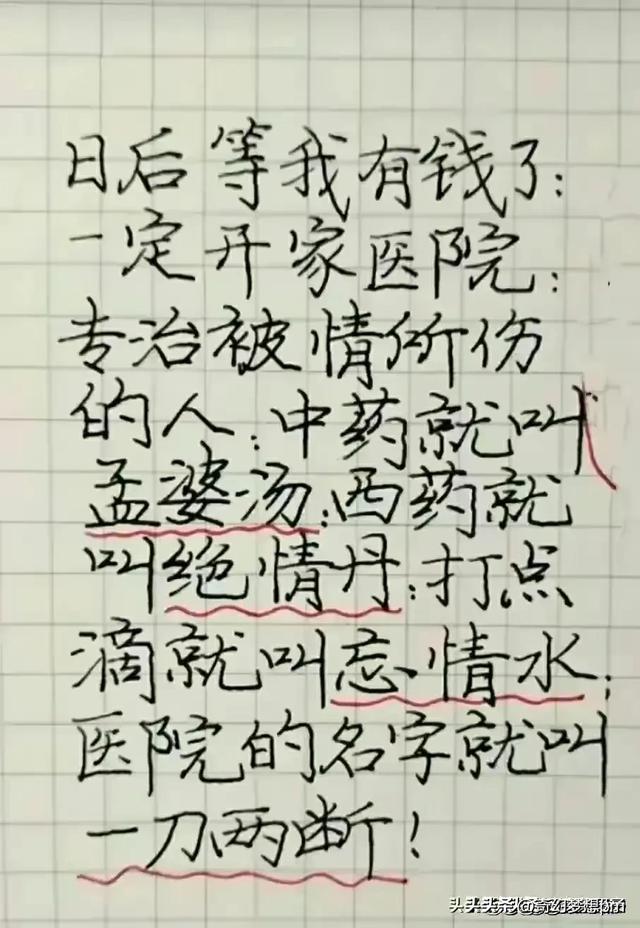 日后等我有钱了：
一定开家医院：
专治被情所伤
的人：中药就叫
孟婆汤：西药就
叫绝情丹：打点
滴就叫忘情水：
医院的名字就叫
一刀两断！